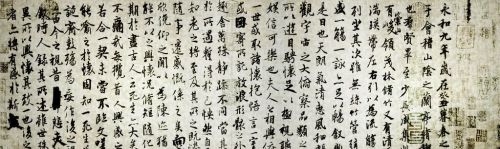 永和九年歲在癸丑暮春之初
于會稽山陰之蘭亭脩稧
也群賢畢至少長咸集
有峻領茂林脩竹又有清流
湍暎帶左右引以為流觴
列坐其次雖無絲竹管弦
盛一觴一詠亦足以暢敘幽
是日也天朗氣清惠風和
觀宇宙之大俯察品類之
所以遊目騁懷足以極視聽
娛信可樂也夫人之相與
一世或取諸懷抱悟言一室
因寄所託放浪形骸之
趣舍萬殊靜躁不同當其
於所遇蹔得於己怏然自足
知老之將至及其所之既惓
隨事遷感慨係之矣向
欣俛仰之閒以為陳迹猶
能不以之興懷況脩短隨化
期於盡古人云死生亦大矣
不痛哉每攬昔人興感之
若合一契未嘗不臨文嗟
能喻之於懷固知一死生為
誕齊彭殤為妄作後之視
亦由今之視昔悲夫
敘時人錄其所述雖世殊
異所以興懷其致一也後之
者亦將有感於斯文